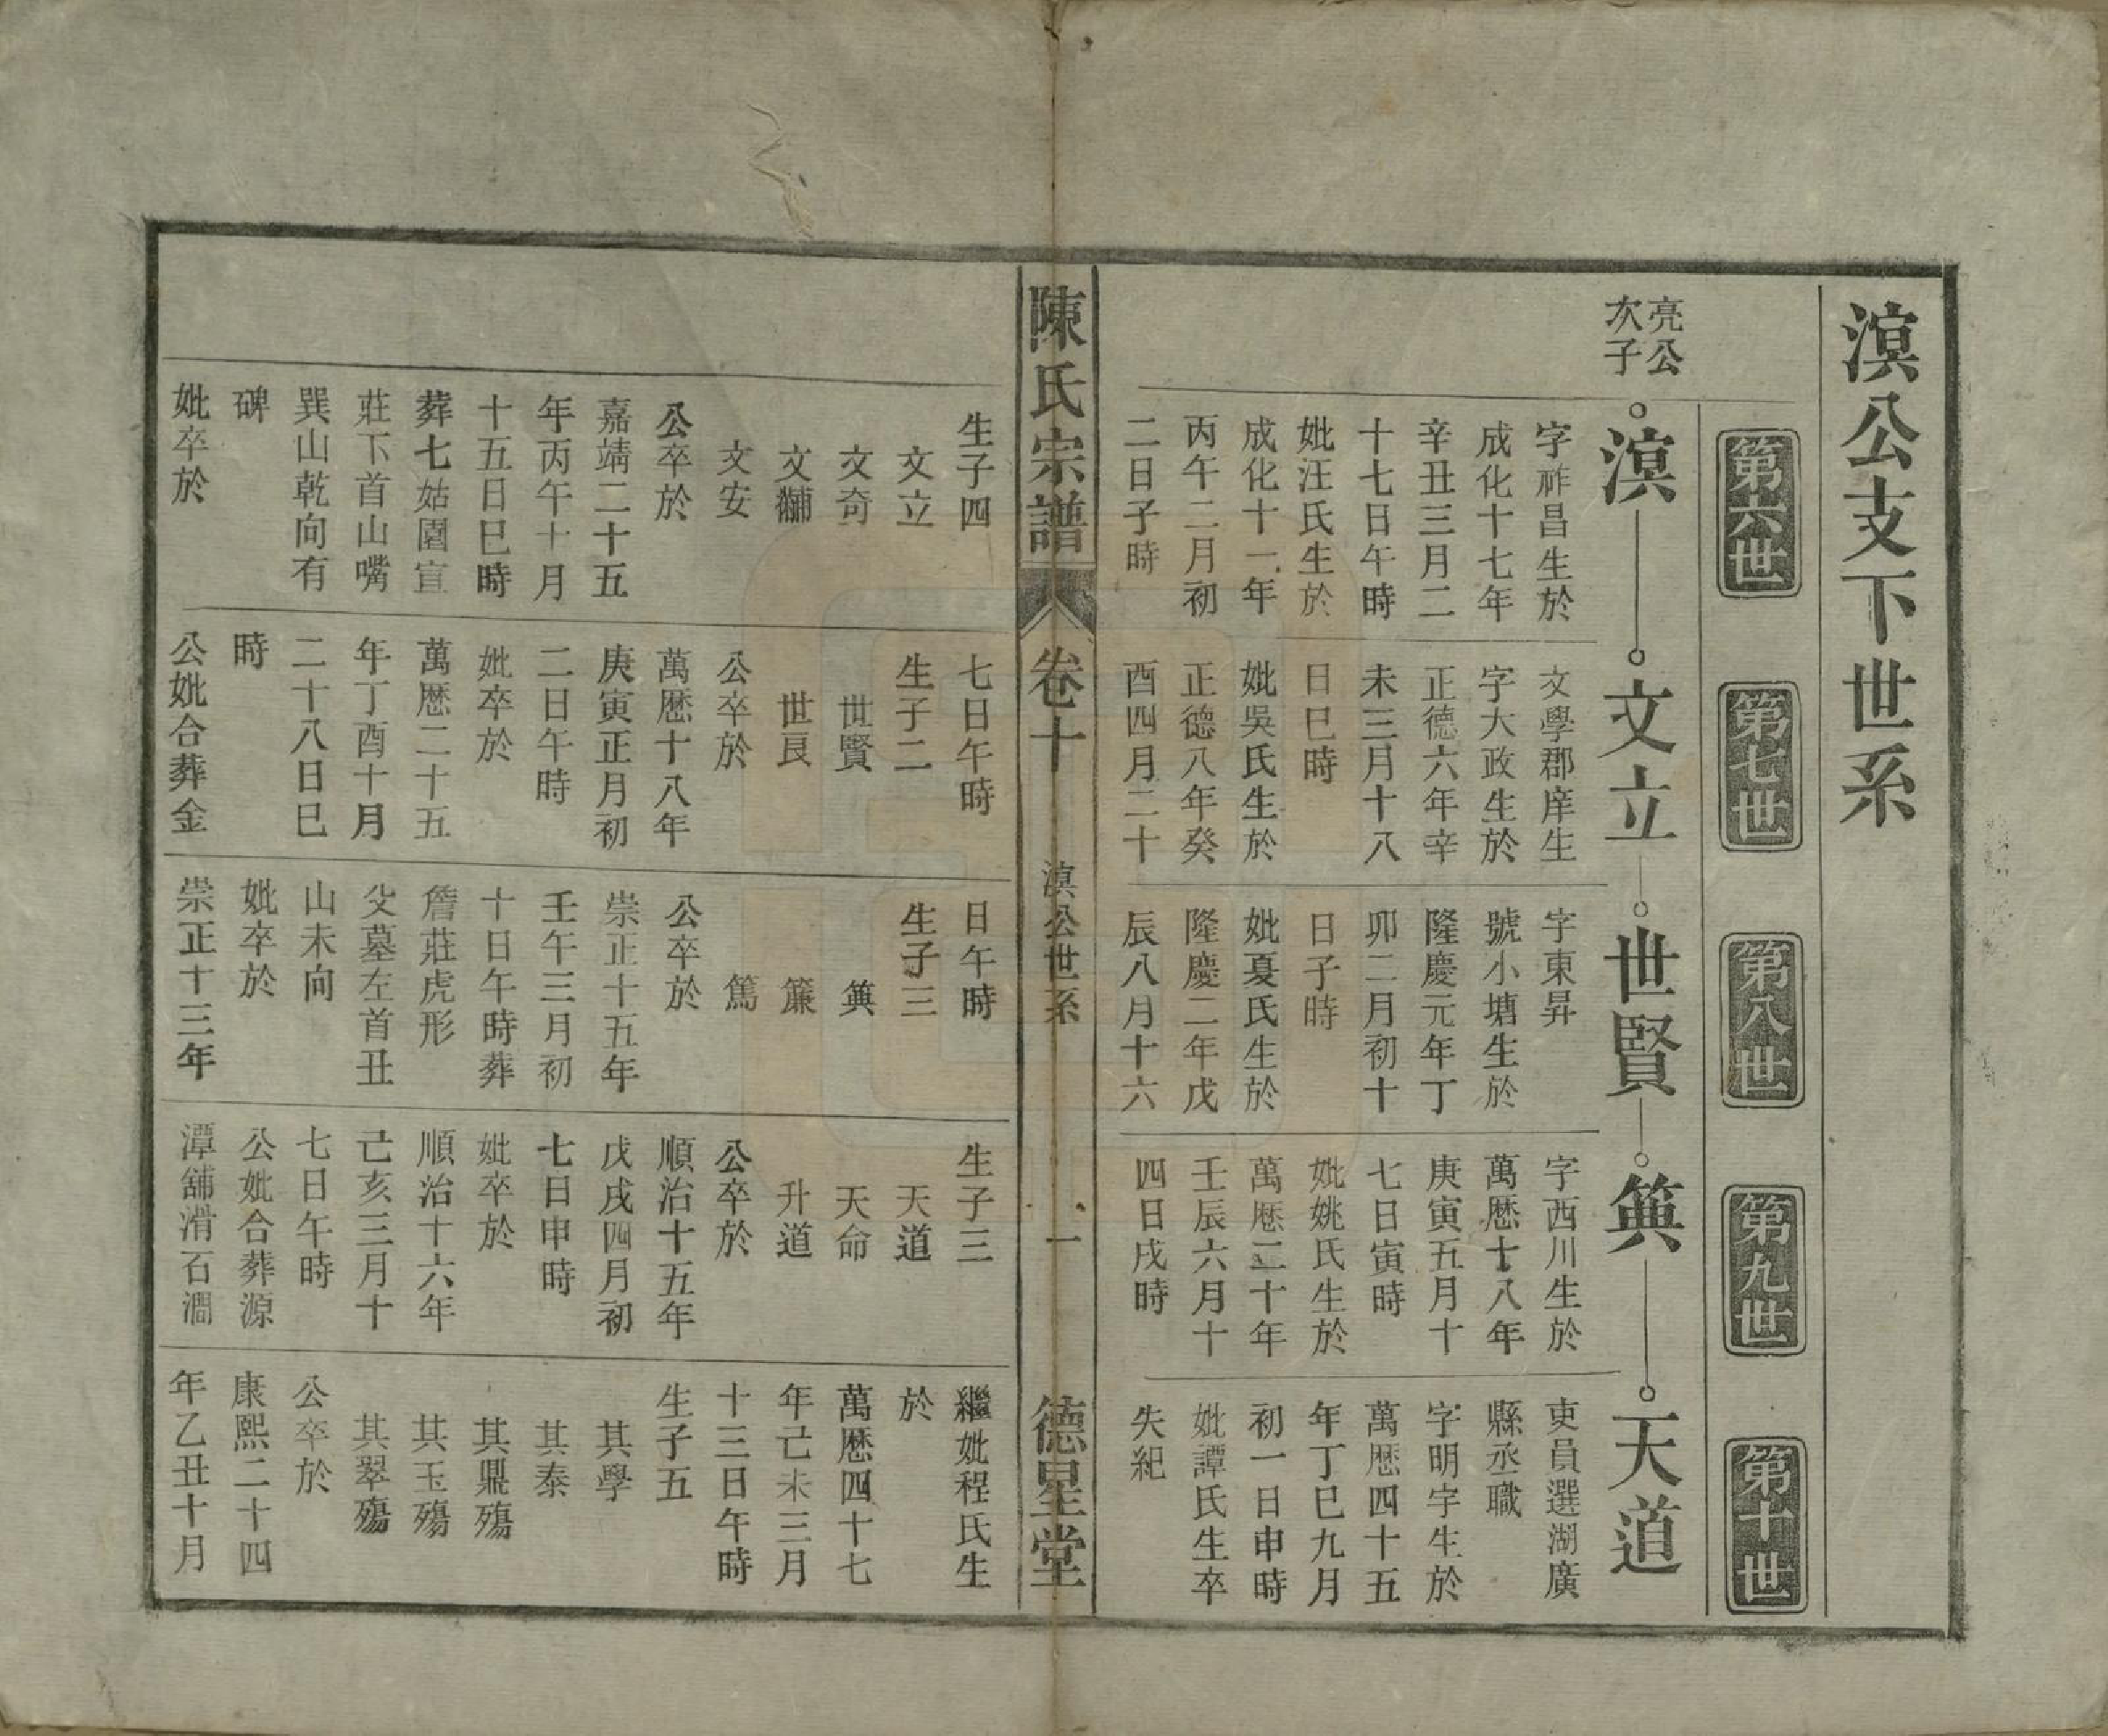 溟公支下世系
第六世
第七世
第八世
第九世
第十世
亮公
次子
溟
文立
世賢
䇶
天道
字祚昌生於
成化十七年
辛丑三月二
十七日午時
妣汪氏生於
成化十一年
丙午二月初
二日子時
文學郡庠生
字大政生於
正德六年辛
未三月十八
日巳時
妣吳氏生於
正德八年癸
酉四月二十
字東昇
號小塘生於
隆慶元年丁
卯二月初十
日子時
妣夏氏生於
隆慶二年戊
辰八月十六
字西川生於
萬歷十八年
庚寅五月十
七日寅時
妣姚氏生於
萬歷二十年
壬辰六月十
四日戌時
吏員選湖廣
縣丞職
字明宇生於
萬歷四十五
年丁巳九月
初一日申時
妣譚氏生卒
失紀
陳氏宗譜
卷十
溟公世系
一
德星堂
生子四
文立
文奇
文黼
文安
公卒於
嘉靖二十五
年丙午十月
十五日巳時
葬七姑園宣
莊下首山嘴
巽山乾向有
碑
妣卒於
七日午時
生子二
世賢
世良
公卒於
萬歷十八年
庚寅正月初
二日午時
妣卒於
萬歷二十五
年丁酉十月
二十八日巳
時
公妣合葬金
日午時
生子三
䇶
簾
篤
公卒於
崇正十五年
壬午三月初
十日午時葬
詹莊虎形
父墓左首丑
山未向
妣卒於
崇正十三年
生子三
天道
天命
升道
公卒於
順治十五年
戊戌四月初
七日申時
妣卒於
順治十六年
己亥三月十
七日午時
公妣合葬源
潭舖滑石澗
繼妣程氏生
於
萬歷四十七
年己未三月
十三日午時
生子五
其學
其泰
其鼎殤
其玉殤
其翠殤
公卒於
康熙二十四
年乙丑十月